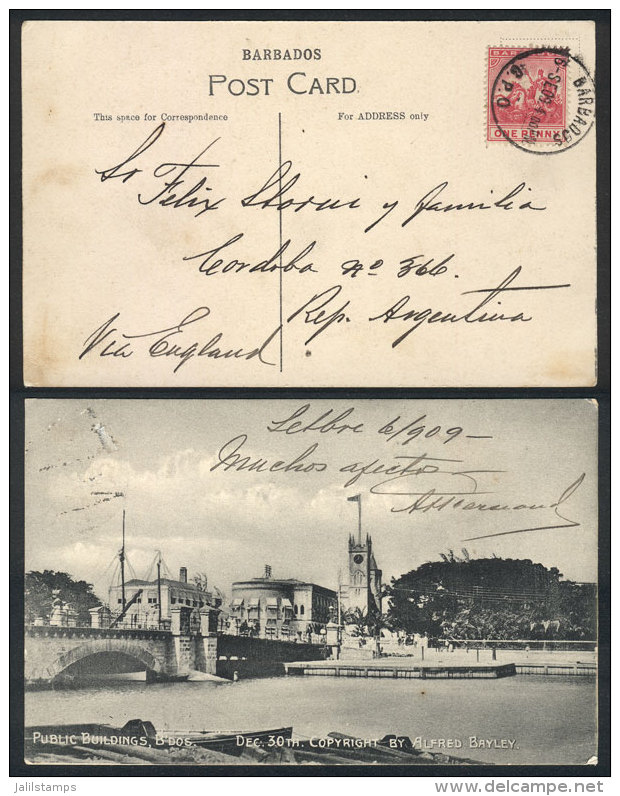 BARBADOS
POST CARD.
This space for Correspondence
For ADDRESS only
BARBADOS
ONE PENNY
BARBADOS
G.P.O
Sr Felix Storni y familia
Cordoba no 366.
Rep. Argentina
Via England
Setbre 6/909-
Muchos afectos
PUBLIC BUILDINGS, B'DOS. DEC. 30TH. COPYRIGHT BY ALFRED BAYLEY.
Jalilstamps
www.delcampe.net